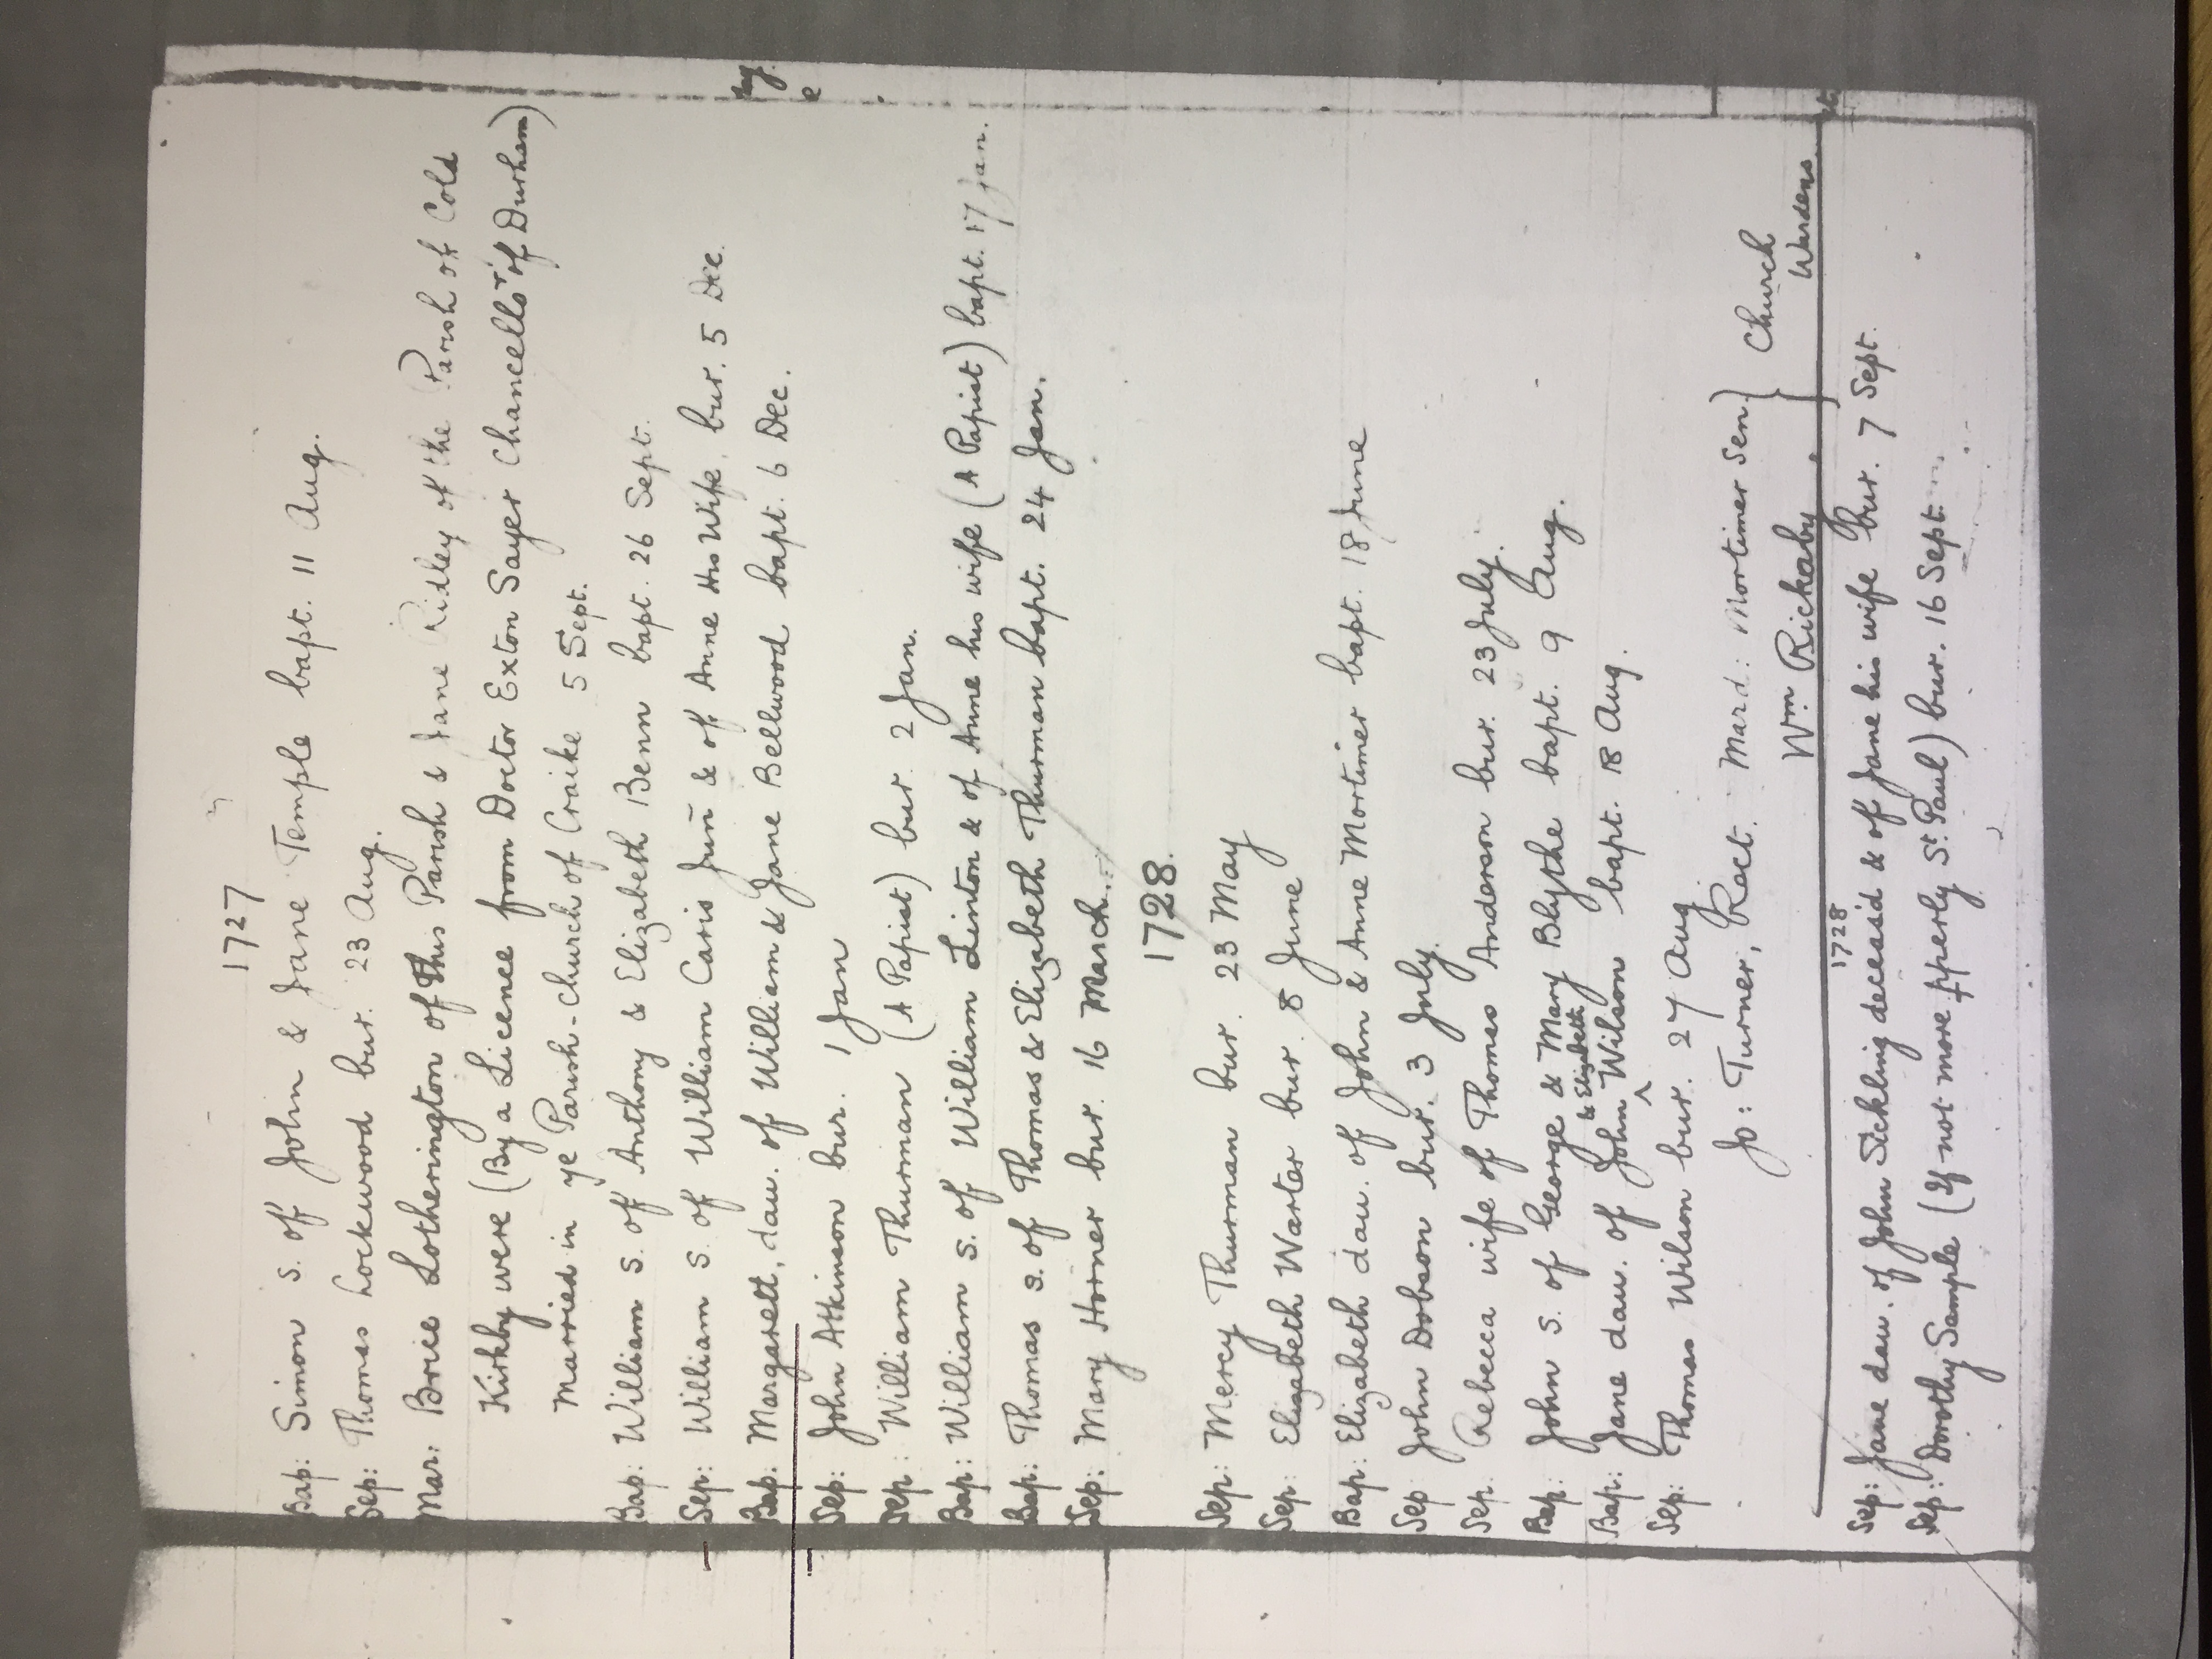 1727
Bap: Simon s. of John & Jane Temple bapt. 11 Aug.
Sep: Thomas Lockwood bur. 23 Aug.
Mar: Brice Lotherington of this Parish & Jane Ridley of the Parish of Cold
Kirkby were (By a Licence from Doctor Exton Sayer Chancellor of Durham)
Married in ye Parish-church of Craike 5 Sept.
Bap: William s. of Anthony & Elizabeth Benn bapt. 26 Sept.
Sep: William s. of William Caris Juñ & of Anne His Wife, bur. 5 Dec.
Bap: Margarett, dau. of William & Jane Bellwood bapt. 6 Dec.
Sep: John Atkinson bur. 1 Jan
Sep: William Thurman (A Papist) bur. 2 Jan.
Bap: William s. of William Linton & of Anne his wife (A Papist) bapt. 17 Jan.
Bap: Thomas s. of Thomas & Elizabeth Thurman bapt. 24 Jan.
Sep: Mary Horner bur. 16 March.
1728.
Sep: Mercy Thurman bur. 23 May
Sep: Elizabeth Warter bur. 8 June
Bap: Elizabeth dau. of John & Anne Mortimer bapt. 18 June
Sep: John Dobson bur. 3 July.
Sep. Rebecca wife of Thomas Anderson bur. 23 July.
Bap: John s. of George & Mary Blythe bapt. 9 Aug.
& Elizabeth
Bap: Jane dau. of John ^ Wilson bapt. 18 Aug.
Sep: Thomas Wilson bur. 27 Aug
Jo: Turner, Rect. Mard: Mortimer Sen.} Church
Wm Rickaby } Wardens
1728
Sep: Jane dau. of John Sickling deceas'd & of Jane his wife bur. 7 Sept.
Sep: Dorothy Sample (If not more pperly St. Paul) bur. 16 Sept.